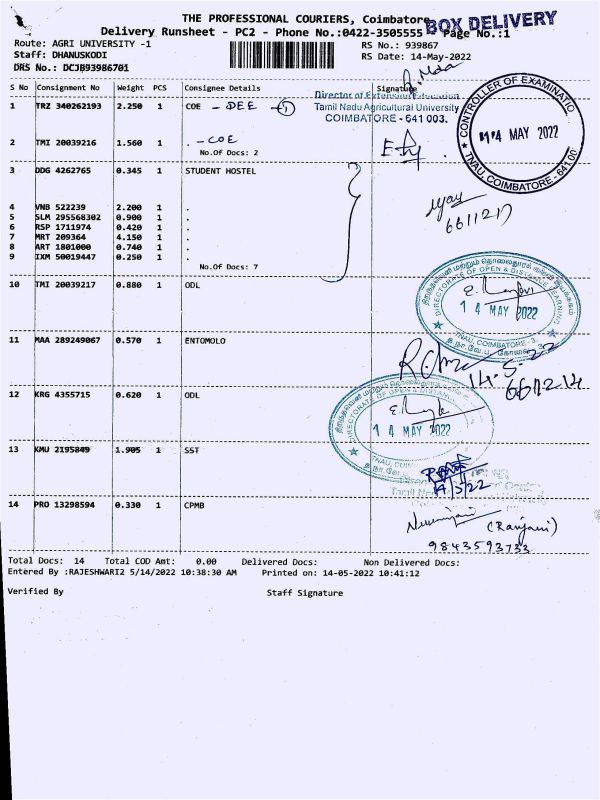 THE PROFESSIONAL COURIERS, Coimbatore
BOX DELIVERY
Delivery Runsheet - PC2 - Phone No.:0422-3505555 Page No.:1
Route: AGRI UNIVERSITY -1
RS No.: 939867
Staff: DHANUSKODI
RS Date: 14-May-2022
DRS No.: DCJB93986701
S No Consignment No Weight PCS Consignee Details Signature
Director of Extension Education
1 TRZ 340262193 2.250 1 COE - DEE
Tamil Nadu Agricultural University
COIMBATORE - 641 003.
CONTROLLER OF EXAMINATIO
14 MAY 2022
TNAU, COIMBATORE - 641 00
2 TMI 20039216 1.560 1 . - COE
No.Of Docs: 2
3 DDG 4262765 0.345 1 STUDENT HOSTEL
4 VNB 522239 2.200 1 .
5 SLM 295568302 0.900 1 .
6 RSP 1711974 0.420 1 .
7 MRT 209364 4.150 1 .
8 ART 1801000 0.740 1 .
9 IXM 50019447 0.250 1 .
No.Of Docs: 7
10 TMI 20039217 0.880 1 ODL
DIRECTORATE OF OPEN & DISTANCE LEARNING
14 MAY 2022
TNAU, COIMBATORE - 3.
11 MAA 289249067 0.570 1 ENTOMOLO
14-5-22
6611214
12 KRG 4355715 0.620 1 ODL
DIRECTORATE OF OPEN & DISTANC
14 MAY 2022
13 KMU 2195849 1.905 1 SST
14/5/22
14 PRO 13298594 0.330 1 CPMB
(Ranjani)
9843593733
Total Docs: 14 Total COD Amt: 0.00 Delivered Docs: Non Delivered Docs:
Entered By :RAJESHWARI2 5/14/2022 10:38:30 AM Printed on: 14-05-2022 10:41:12
Verified By Staff Signature